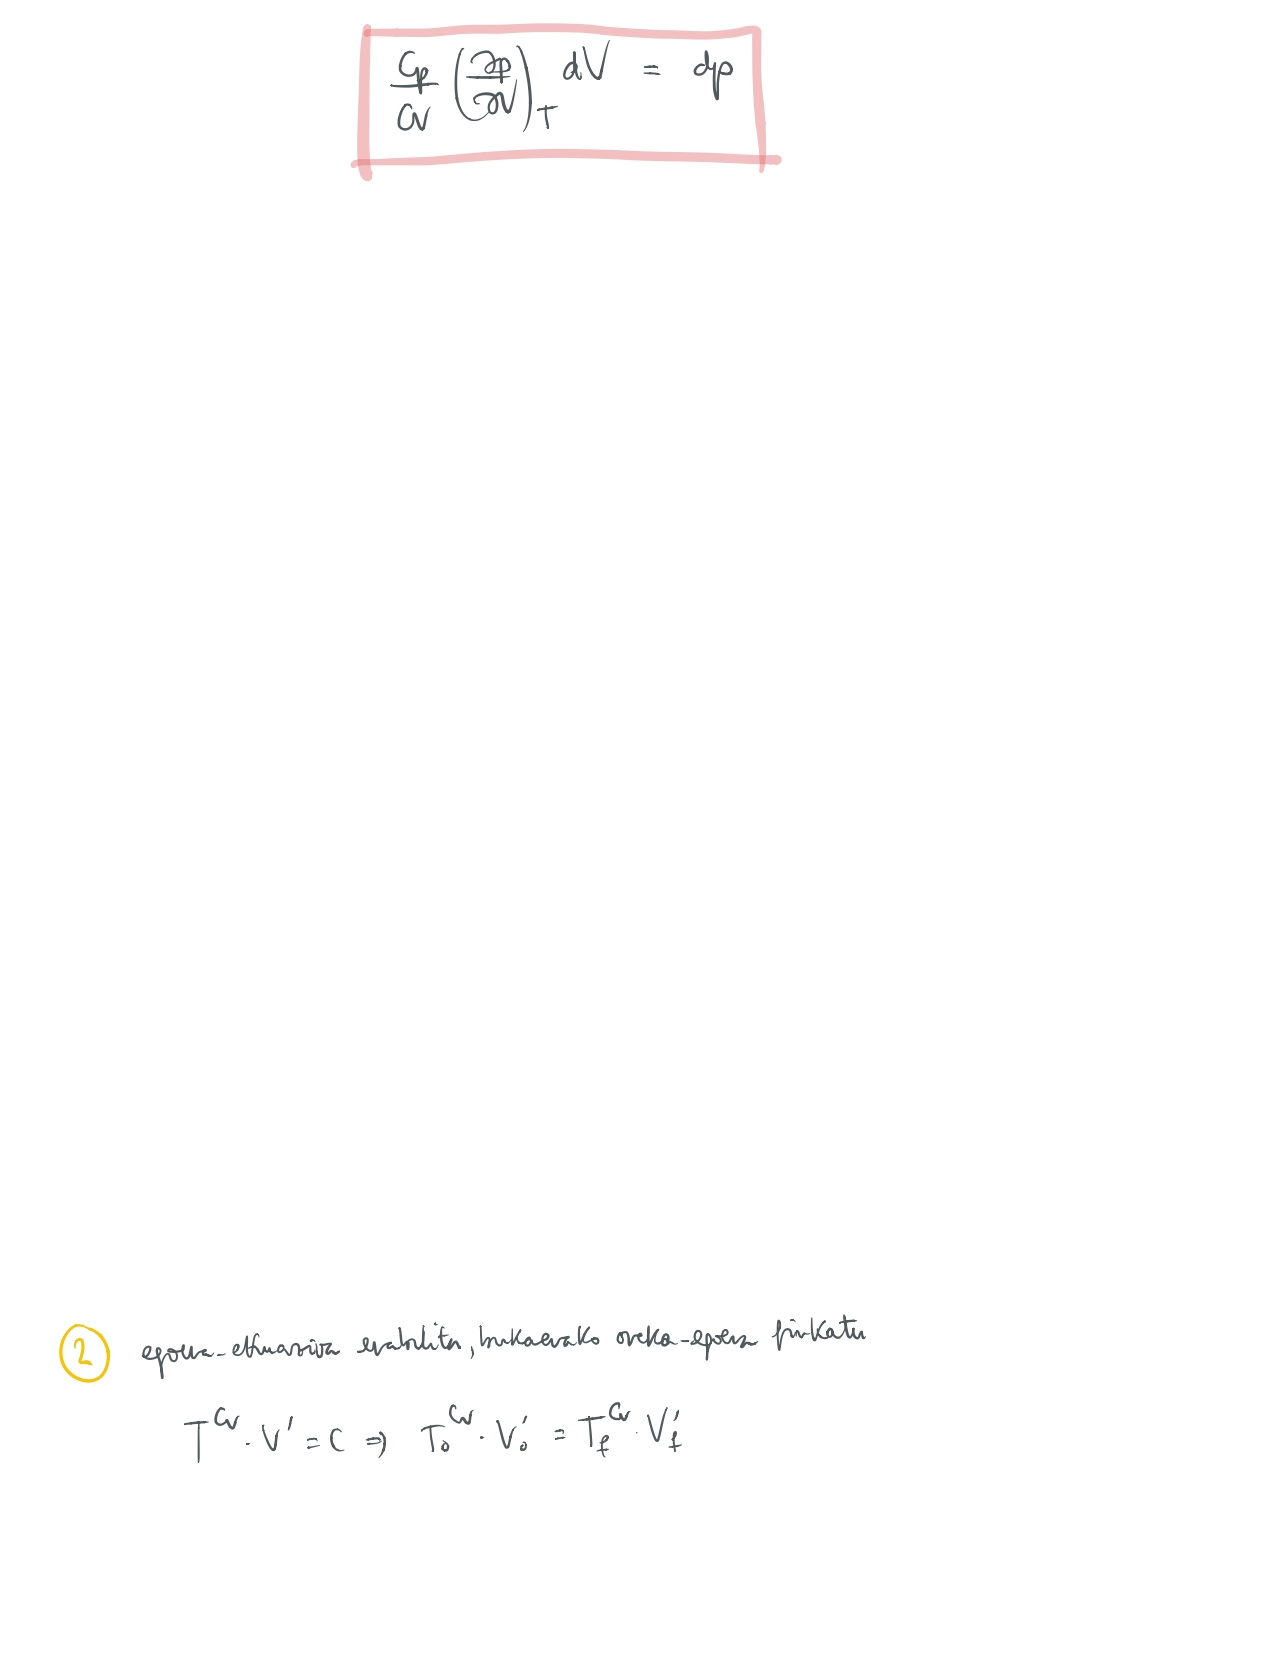 Cp/Cv (∂p/∂V)_T dV = dp
2 egoera-ekuazioa erabilita, bukaerako oreka-egoera finkatu
T^Cv · V' = C ⇒ T₀^Cv · V₀' = T_f^Cv · V_f'